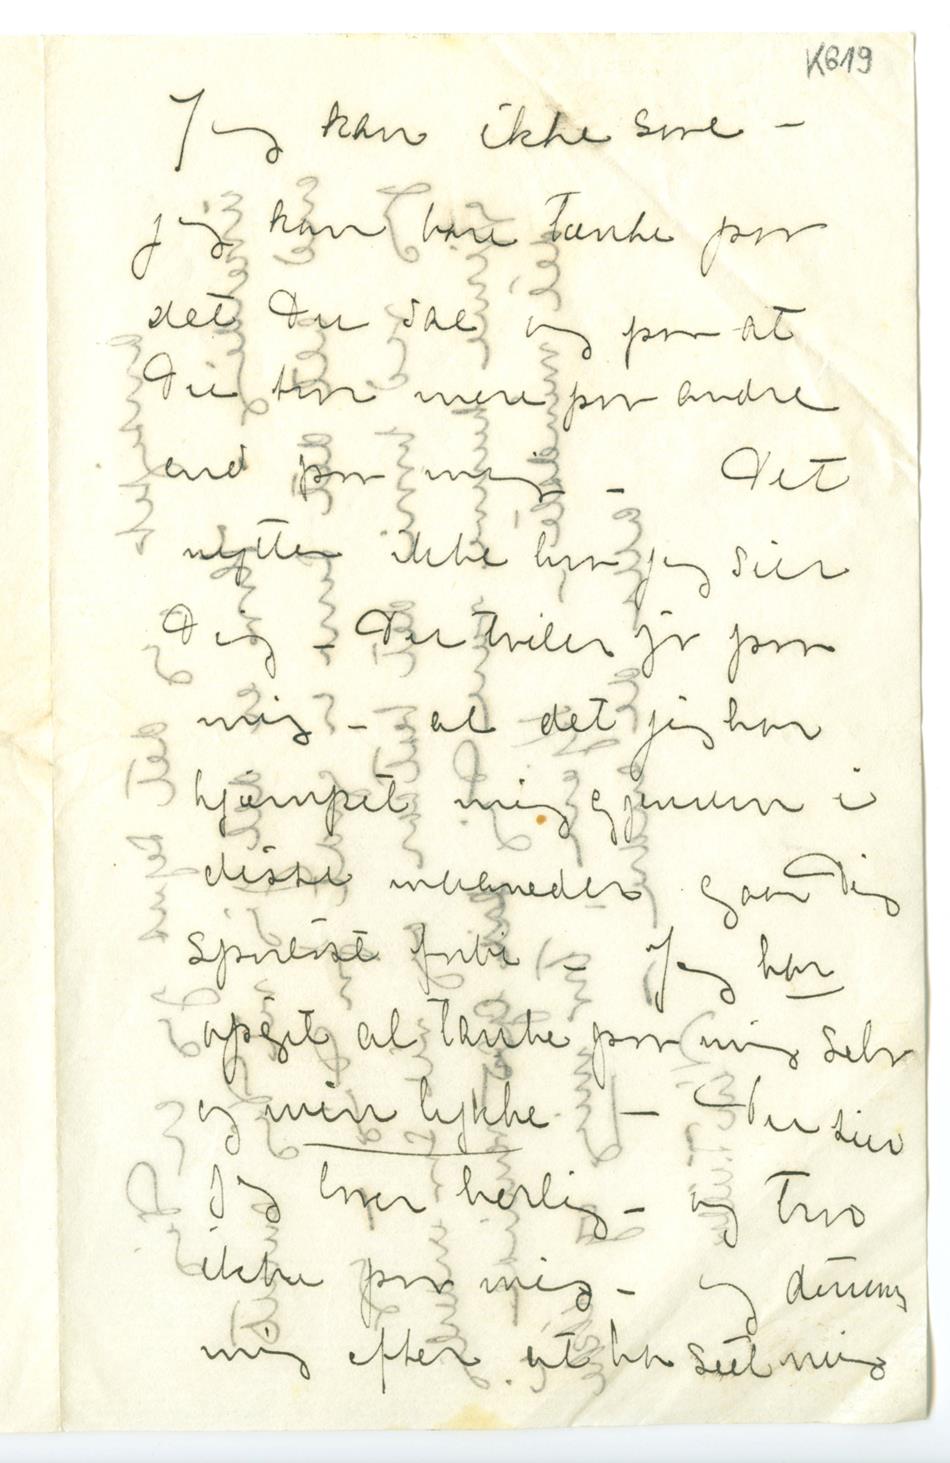 K619
Jeg kan ikke sove –
jeg kan bare tænke paa
det Du sae og paa at
Du tror mere paa andre
end paa mig – Det
nytter ikke hva jeg sier
Dig – Du tviler jo paa
mig – al det jeg har
kjæmpet mig gjennem i
disse maaneder gaar Dig
sporløst forbi – Jeg har
opgit al tanke paa mig selv
og min lykke – Du sier
Jeg lover herlig – og tro
ikke paa mig – og dømmer
mig efter at ha seet mig